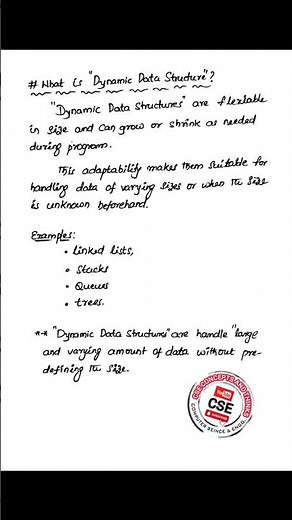 # What is "Dynamic Data Structure"?
"Dynamic Data Structures" are flexiable
in size and can grow or shrink as needed
during program.
This adaptability makes them suitable for
handling data of varying sizes or when the size
is unknown beforehand.
Examples:
• Linked lists,
• Stacks
• Queues
• trees.
** "Dynamic Data Structures" are handle "large
and varying amount of data without pre-
defining the size.
CSE CONCEPTS AND THINKS
CSE
COMPUTER SEINCE & ENGG.